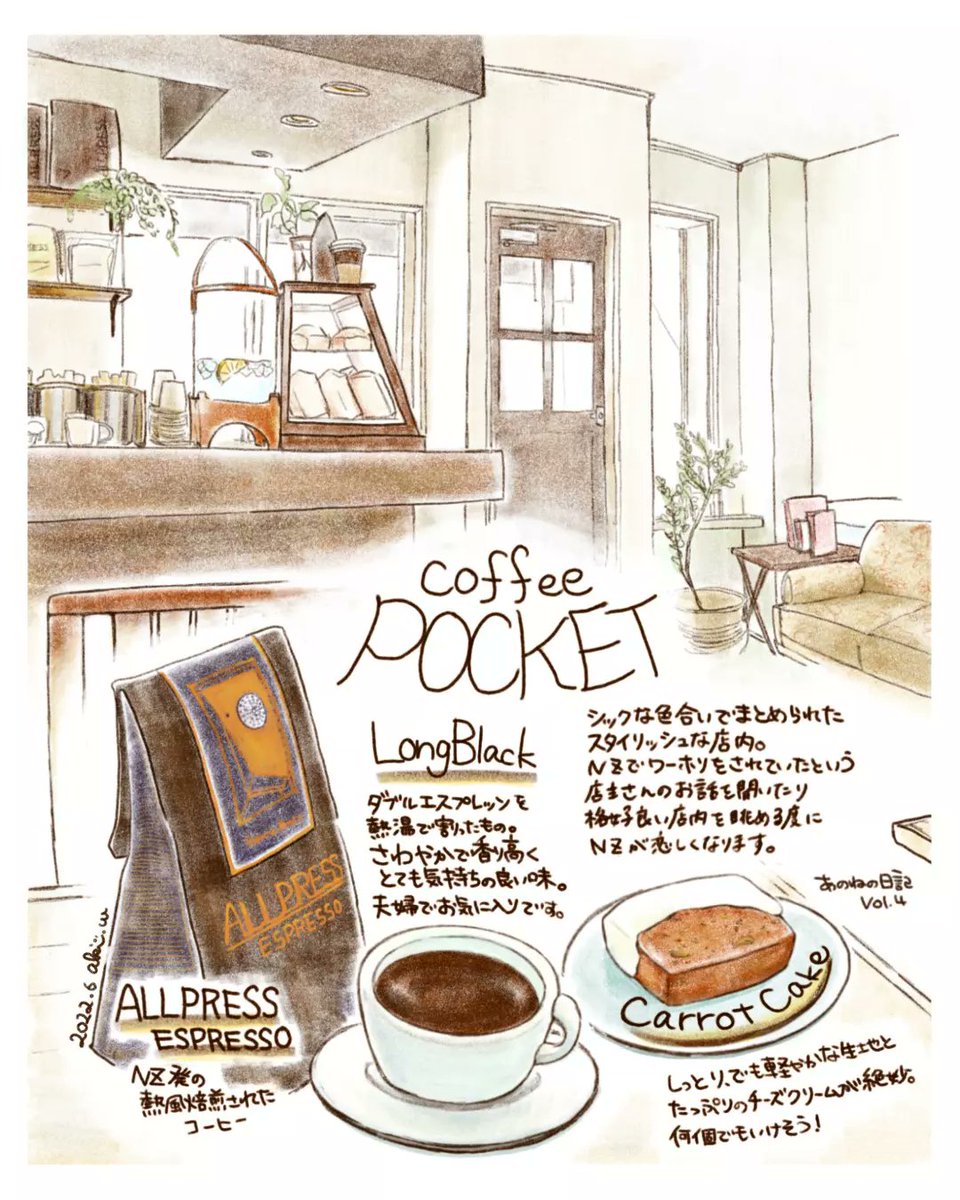 coffee
POCKET
LongBlack
ダブルエスプレッソを
熱湯で割ったもの。
さわやかで香り高く
とても気持ちの良い味。
夫婦でお気に入りです。
シックな色合いでまとめられた
スタイリッシュな店内。
NZでワーホリをされていたという
店主さんのお話を聞いたり
格好良い店内を眺める度に
NZが恋しくなります。
あのねの日記
Vol.4
ALLPRESS
ESPRESSO
2022.6 aki.w
ALLPRESS
ESPRESSO
NZ発の
熱風焙煎された
コーヒー
Carrot Cake
しっとり、でも軽やかな生地と
たっぷりのチーズクリームが絶妙。
何個でもいけそう!